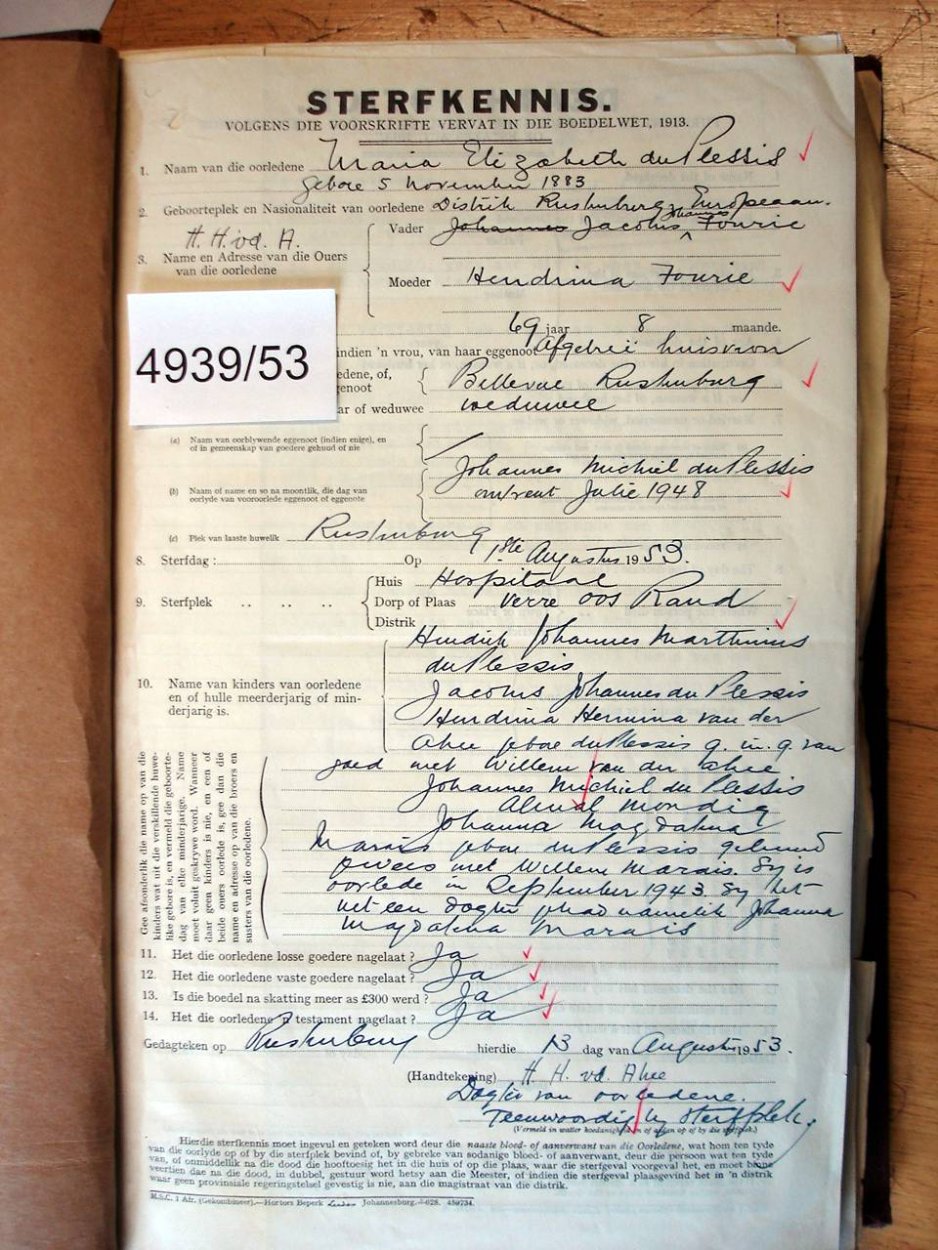 STERFKENNIS.
VOLGENS DIE VOORSKRIFTE VERVAT IN DIE BOEDELWET, 1913.
1. Naam van die oorledene Maria Elizabeth du Plessis
gebore 5 November 1883
2. Geboorteplek en Nasionaliteit van oorledene Distrik Rustenburg, Europeaan.
H. H. vd. A.
3. Name en Adresse van die Ouers van die oorledene
Vader Johannes Jacobus Johannes Fourie
Moeder Hendrina Fourie
69 jaar 8 maande.
4939/53
indien 'n vrou, van haar eggenoot Afgeleë huisvrou
edene, of,
genoot
Bellevue Rustenburg
ar of weduwee weduwee
(a) Naam van oorblywende eggenoot (indien enige), en
of in gemeenskap van goedere gehuud of nie
(b) Naam of name en so na moontlik, die dag van
oorlyde van vooroorlede eggenoot of eggenote
Johannes Michiel du Plessis
omtrent Julie 1948
(c) Plek van laaste huwelik Rustenburg
8. Sterfdag: Op 1ste Augustus 1953.
9. Sterfplek .. .. ..
Huis Hospitaal
Dorp of Plaas Verre Oos Rand
Distrik
10. Name van kinders van oorledene
en of hulle meerderjarig of min-
derjarig is.
Hendrik Johannes Marthinus
du Plessis
Jacobus Johannes du Plessis
Hendrina Hermina van der
Ahee gebore du Plessis g. in. g. van
goed met Willem van der Ahee
Johannes Michiel du Plessis
Almal mondig
Johanna Magdalena
Marais gebore du Plessis gehuud
gewees met Willem Marais. Sy is
oorlede in September 1943. Sy het
net een dogter gehad namelik Johanna
Magdalena Marais
Gee afsonderlik die name op van die
kinders wat uit die verskillende huwe-
like gebore is, en vermeld die geboorte-
dag van elke minderjarige. Name
moet voluit geskrywe word. Wanneer
daar geen kinders is nie, en een of
beide ouers oorlede is, gee dan die
name en adresse op van die broers en
susters van die oorledene.
11. Het die oorledene losse goedere nagelaat? Ja
12. Het die oorledene vaste goedere nagelaat? Ja
13. Is die boedel na skatting meer as £300 werd? Ja
14. Het die oorledene 'n testament nagelaat? Ja
Gedagteken op Rustenburg hierdie 13 dag van Augustus 1953.
(Handtekening) H. H. vd. Ahee
Dogter van oorledene.
Teenwoordig by sterfplek.
(Vermeld in watter hoedanigheid en of aldan op of by die sterfplek.)
Hierdie sterfkennis moet ingevul en geteken word deur die naaste bloed- of aanverwant van die Oorledene, wat hom ten tyde
van die oorlyde op of by die sterfplek bevind of, by gebreke van sodanige bloed- of aanverwant, deur die persoon wat ten tyde
van, of onmiddellik na die dood die hooftoesig het in die huis of op die plaas, waar die sterfgeval voorgeval het, en moet binne
veertien dae na die dood, in dubbel, gestuur word hetsy aan die Meester, of indien die sterfgeval plaasgevind het in 'n distrik
waar geen provinsiale regeringstelsel gevestig is nie, aan die magistraat van die distrik.
M.S.C. 1 Afr. (Gekombineer).—Hortors Beperk Johannesburg.